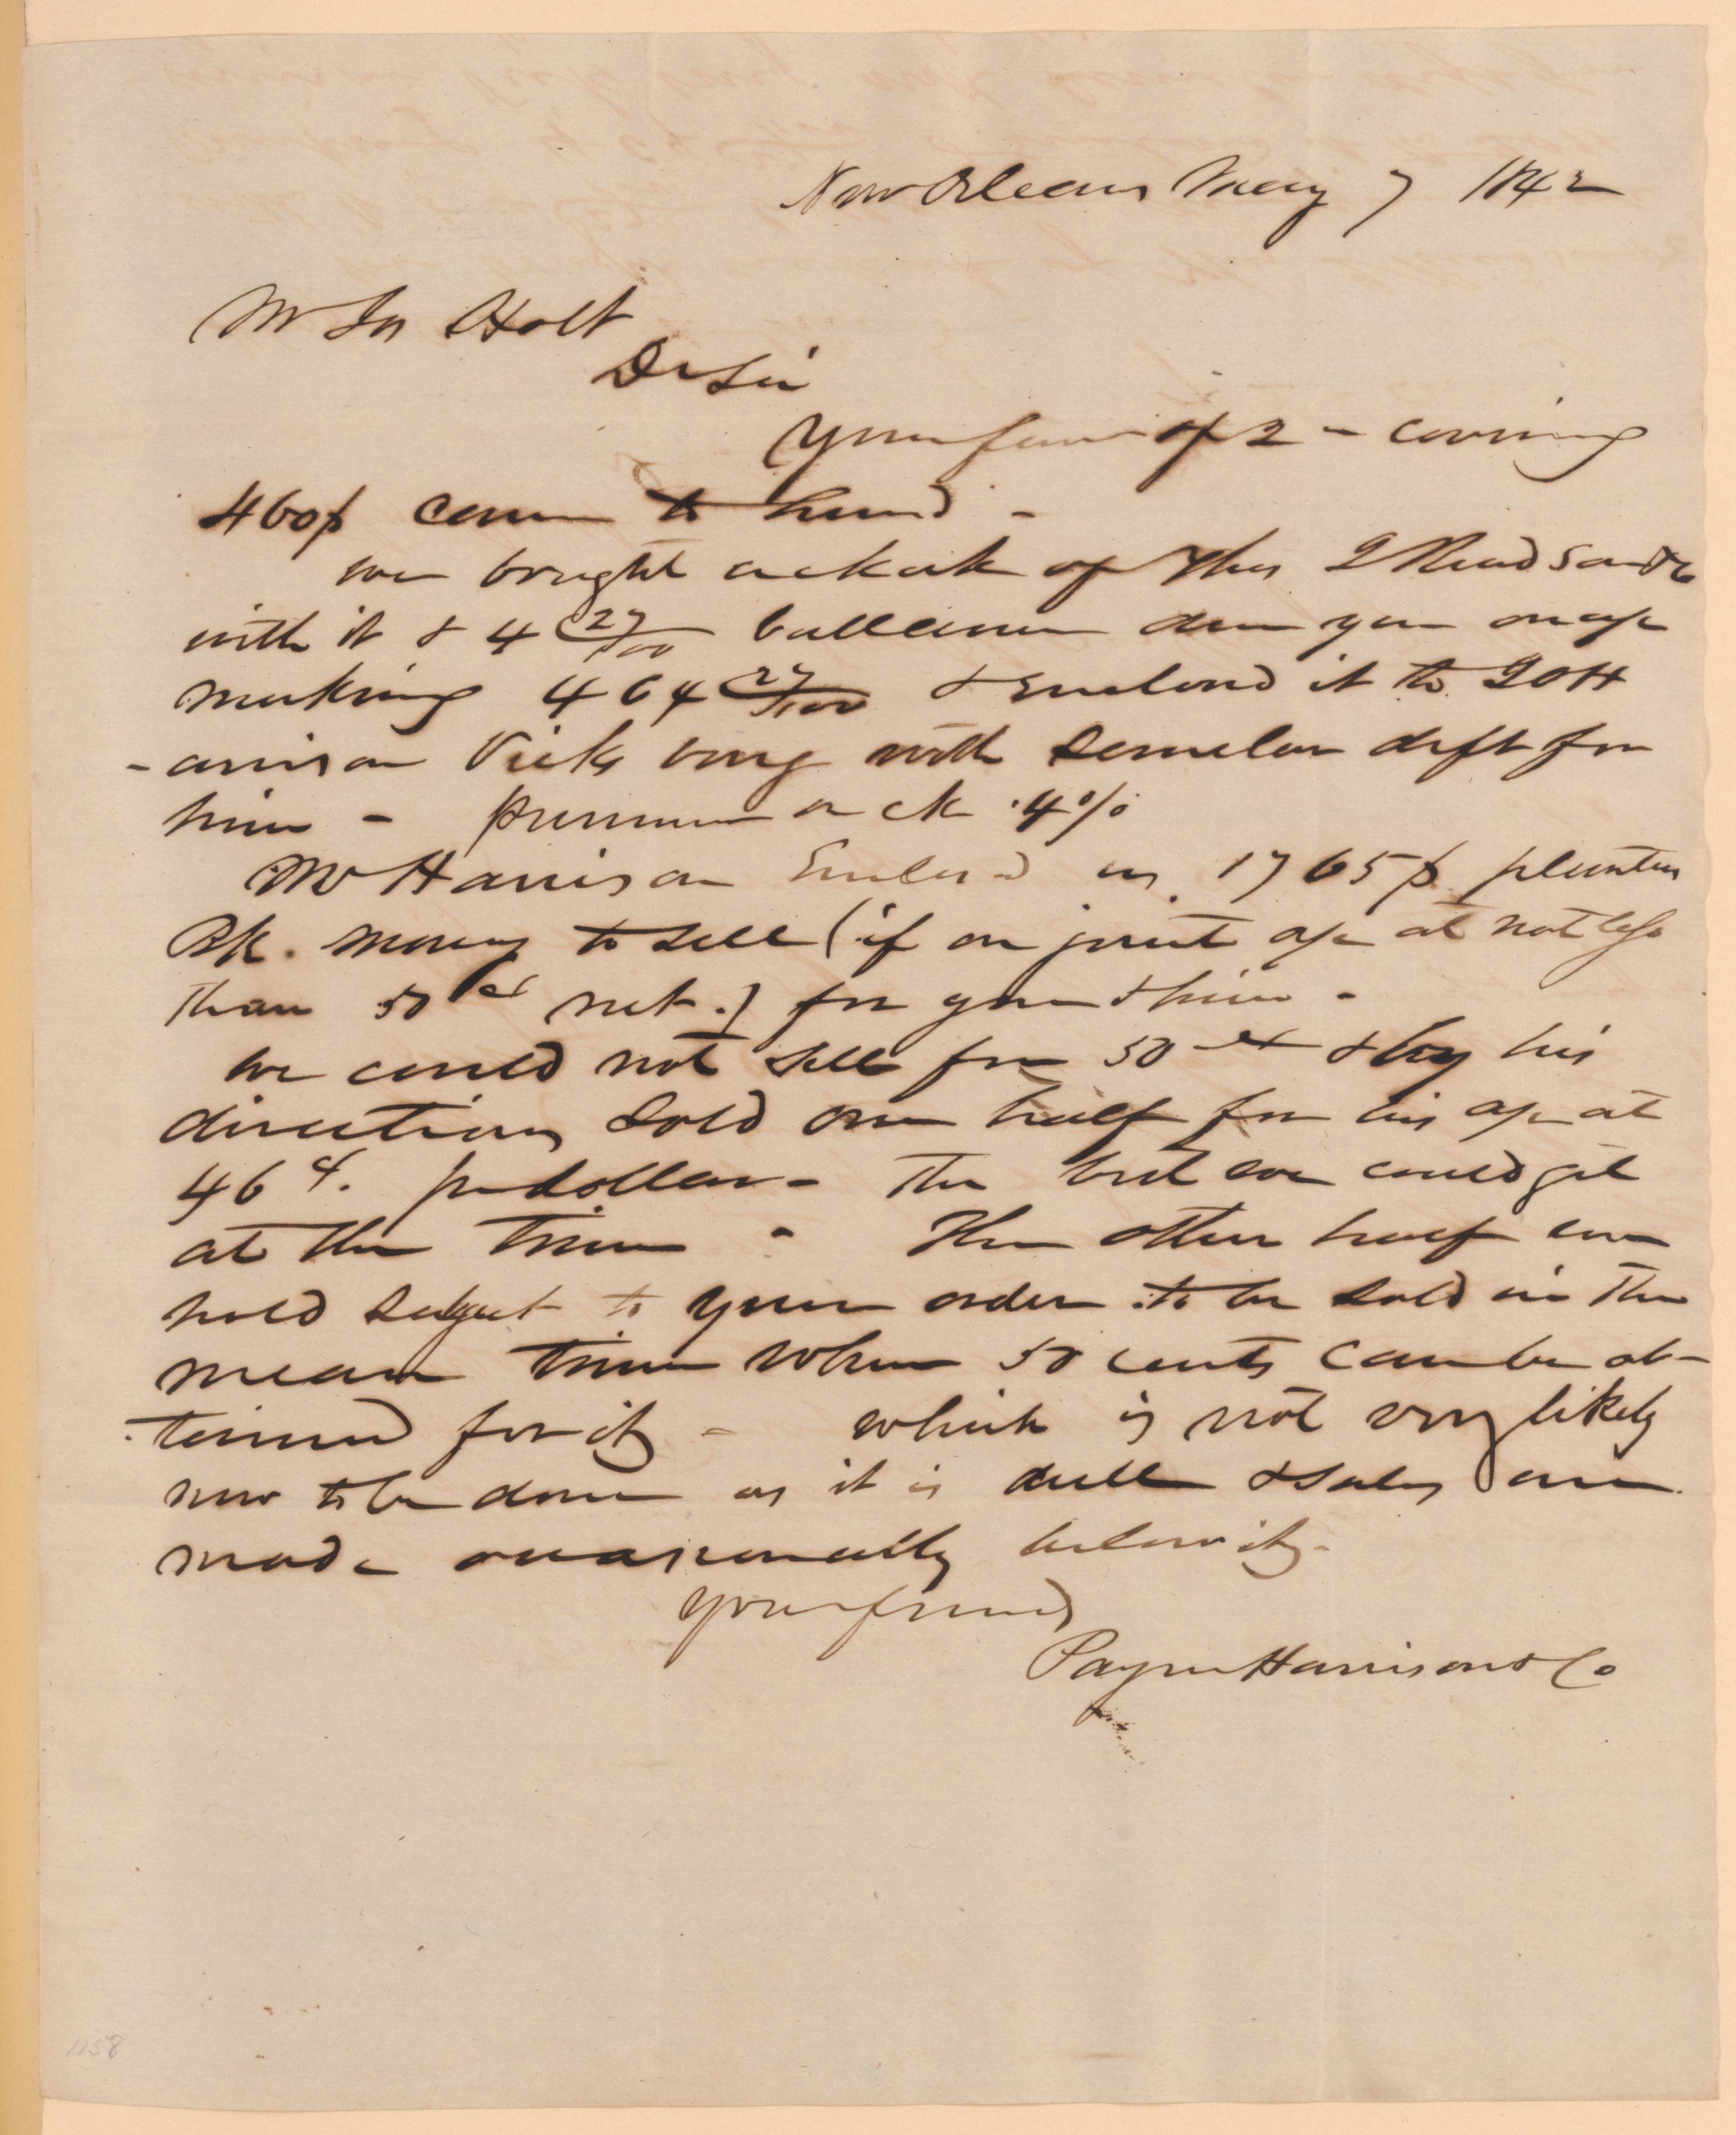 New Orleans May 7 1842
Mr Jos Holt
Dr Sir
Your favor of 2 - covering
460$ came to hand -
we bought a check of Thos
with it & 4 27/100 ballance due you on a/c
making 464 27/100 & enclosed it to J O H
-arrison Vicks burg with semelar dft for
him - premium on ck . 4%
Mr Harrison Enclosed us 1765$ planters
Bk. money to sell (if on joint a/c at not less
than 50 cts net.) for you & him -
we could not sell for 50 cts & by his
directions sold one half for his a/c at
46 c. pr dollar - The best we could get
at the time - The other half we
hold subject to your order to be sold in the
mean time when 50 cents can be ob-
tained for it - which is not very likely
now to be done as it is dull & sales are
made occasionally below it.
your friends
Payne Harrison & Co
1158